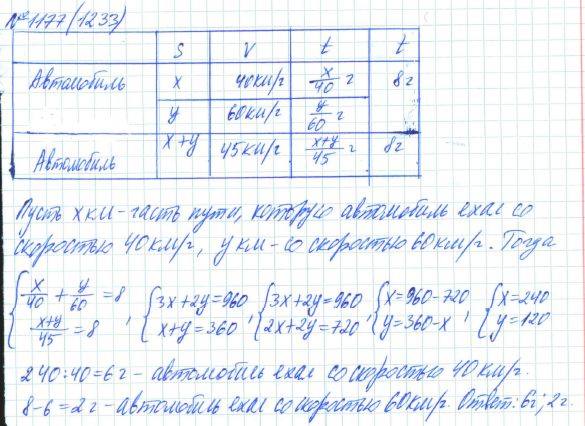 № 1177 (1233)
S V t t
Автомобиль x 40км/г x/40 г 8г
y 60км/г y/60 г
Автомобиль x+y 45км/г x+y/45 г 8г
Пусть x км - часть пути, которую автомобиль ехал со
скоростью 40км/г, y км - со скоростью 60км/г. Тогда
{ x/40 + y/60 = 8 , { 3x+2y=960 , { 3x+2y=960 , { x=960-720 , { x=240
x+y/45 = 8 x+y=360 2x+2y=720 y=360-x y=120
240:40=6г - автомобиль ехал со скоростью 40км/г.
8-6=2г - автомобиль ехал со скоростью 60км/г. Ответ: 6г; 2г.